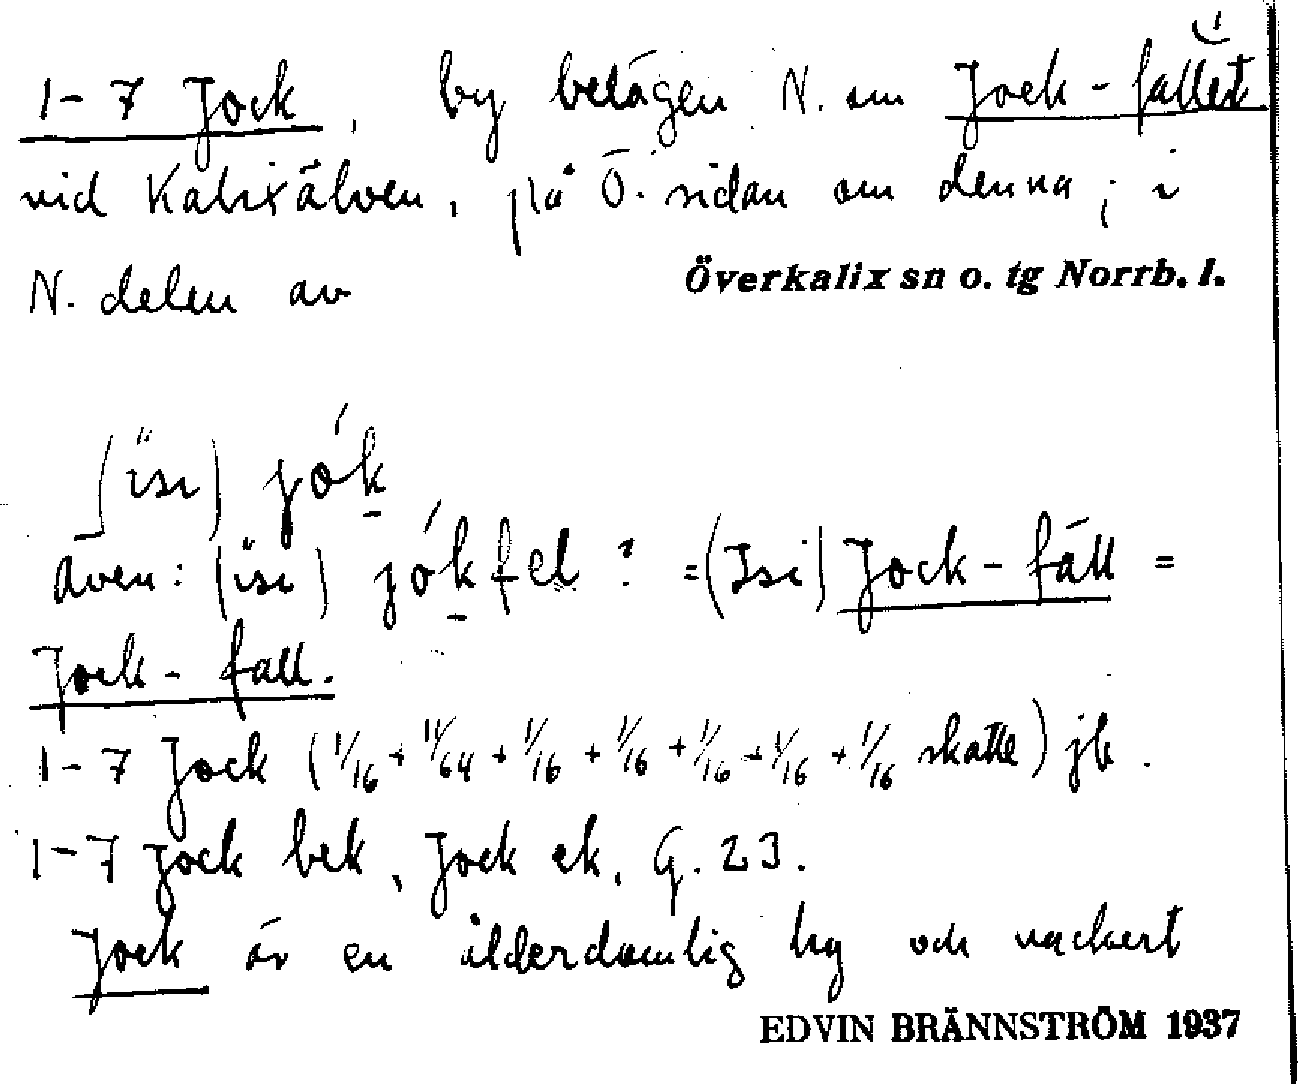 1-7 Jock, by belägen N. om Jock-fallet
vid Kalixälven, på Ö. sidan om denna; i
N. delen av Överkalix sn o. tg Norrb. l.
(isi) jók
även: (isi) jókfel ? = (Isi) Jock-fäll =
Jock-fall.
1-7 Jock (1/16 + 11/64 + 1/16 + 1/16 + 1/16 + 1/16 + 1/16 skatte) jb.
1-7 Jock bek, Jock ek, G. 23.
Jock är en ålderdomlig by och vackert
EDVIN BRÄNNSTRÖM 1937